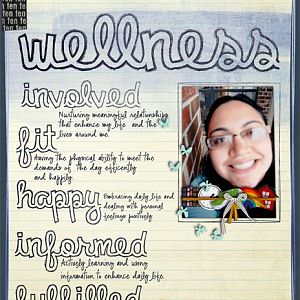 ten ten ten
wellness
involved
Nurturing meaningful relationships
that enhance my life and the
lives around me.
fit
Having the physical ability to meet the
demands of the day efficently
and happily
happy
Embracing daily life and
dealing with personal
feelings positively
informed
Actively learning and using
information to enhance daily life.
fulfilled